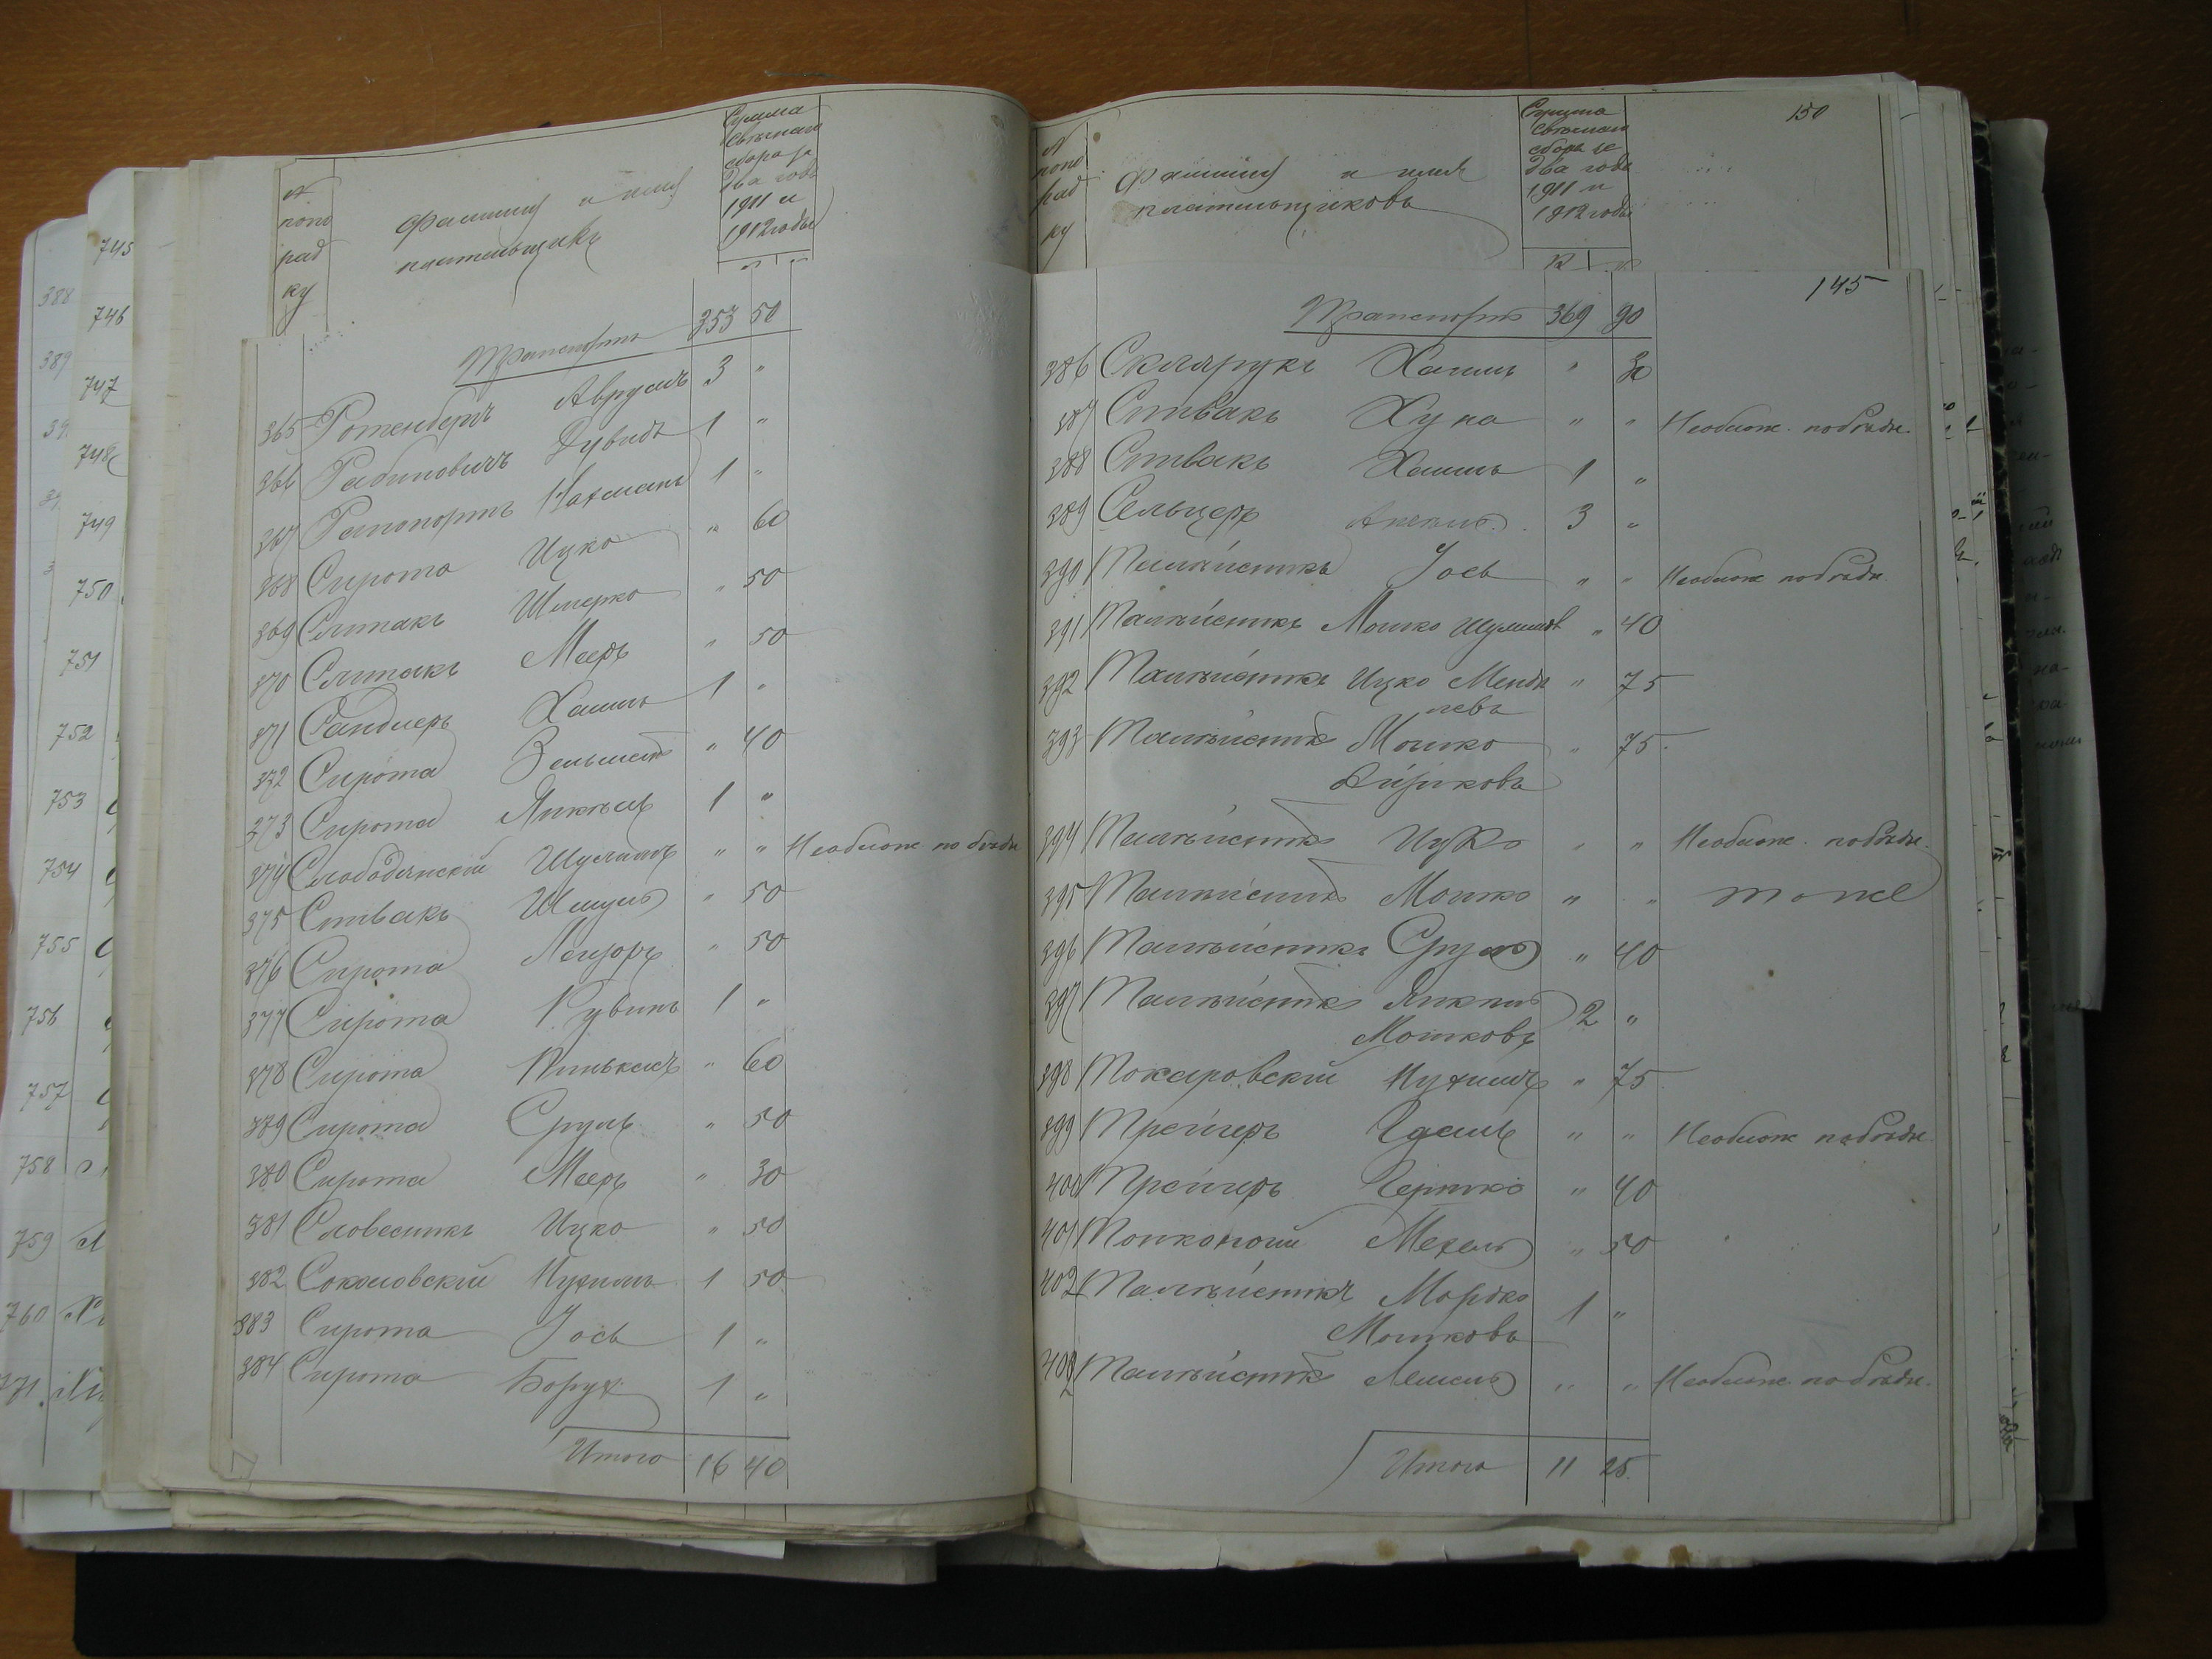 №
поно
ряд
ку
Фамилия и имя
плательщикъ
Сумма
свѣчнаго
сбора за
два года
1911 и
1912 годы
Транспортъ 353 50
365 Ротенбергъ Аврумъ 3 "
366 Рабиновичъ Дувидъ 1 "
367 Рапопортъ Нахманъ 1 "
368 Сирота Ицко " 60
369 Слитакъ Шмерко " 50
370 Слитакъ Мееръ " 50
371 Сандлеръ Хаимъ 1 "
372 Сирота Зельманъ " 40
373 Сирота Янкель 1 "
374 Слободянскій Шулимъ " " Необлож. по бѣдн.
375 Спивакъ Шмуль " 50
376 Сирота Лейзоръ " 50
377 Сирота Рувинъ 1 "
378 Сирота Пинькасъ " 60
379 Сирота Сруль " 50
380 Сирота Мееръ " 30
381 Словесникъ Ицко " 50
382 Соколовскій Нухимъ 1 50
383 Сирота Іось 1 "
384 Сирота Борух 1 "
Итого 16 40
№
поно
ряд
ку
Фамилия и имя
плательщиковъ
Сумма
свѣчнаго
сбора за
два года
1911 и
1912 годы
150
145
Транспортъ 369 90
386 Склярукъ Хаимъ " 30
387 Спивакъ Хуна " " Необлож. по бѣдн.
388 Спивакъ Хаимъ 1 "
389 Сельцеръ 3 "
390 Талиѣйсникъ Іось " " Необлож по бѣдн
391 Талиѣйсникъ Мошко Шулимов " 40
392 Талиѣйсникъ Ицко Менде " 75
левъ
393 Талиѣйсникъ Мошко " 75
Айзиковъ
394 Талиѣйсникъ Ицко " " Необлож. по бѣдн.
395 Талиѣйсникъ Мошко " " тоже
396 Талиѣйсникъ Сруль " 40
397 Талиѣйсникъ Янкель 2 "
Мошковъ
398 Токаровскій Нухимъ " 75
399 Трейгеръ " " Необлож по бѣдн.
400 Трейгеръ Гершко " 40
401 Тонконогій Мехель " 50
402 Талиѣйсникъ Мордко 1 "
Мошковъ
402 Талиѣйсникъ " " Необлож. по бѣдн.
Итого 11 25
388
389
39
745
746
747
748
749
750
751
752
753
754
755
756
757
758
759
760